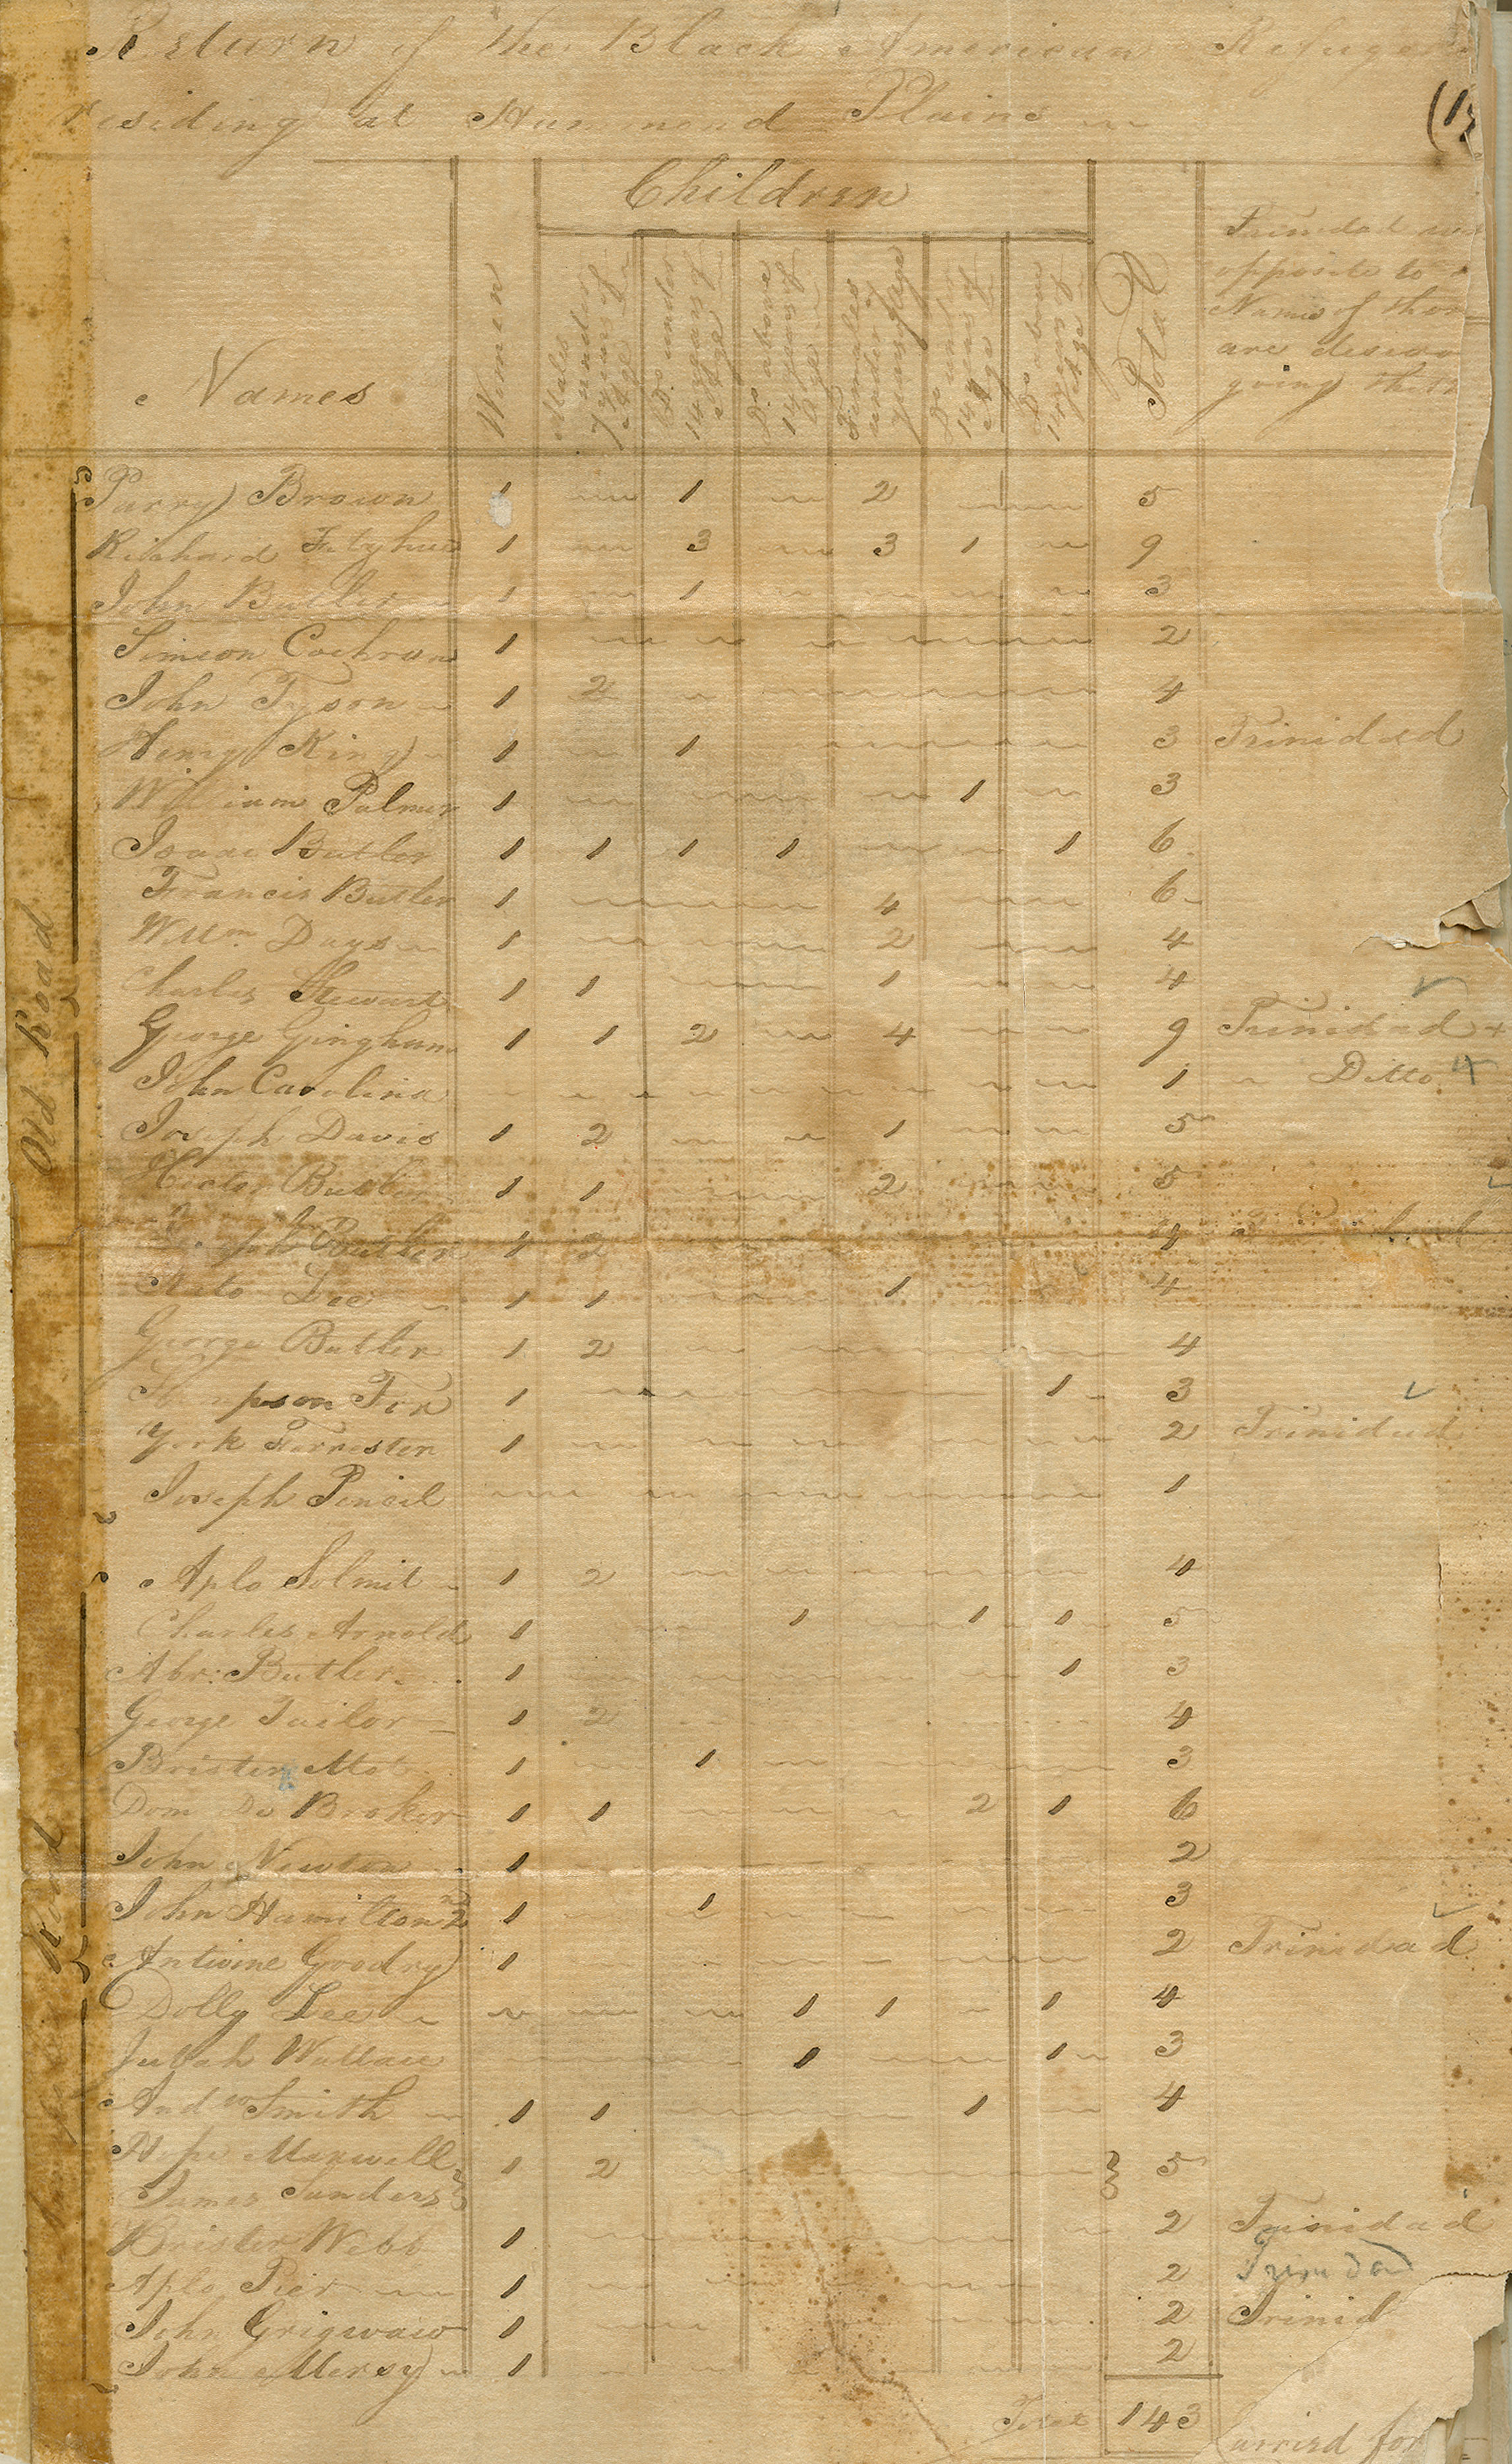 Return of the Black American Refugees
residing at Hammond Plains
(15
Children
Names
Women
Males under 7 years of Age
Do under 14 years of Age
Do above 14 years of Age
Females under 7 years of Age
Do under 14 years of Age
Do above 14 years of Age
Total
Trinidad
opposite to
Names of those
are desirous
going
Old Road
Parry Brown 1 1 2 5
Richard 1 3 3 1 9
John Butler 1 1 3
Simeon Cochran 1 2
John Tyson 1 2 4
Henry King 1 1 3 Trinidad
William Palmer 1 1 3
Isaac Butler 1 1 1 1 1 6
Francis Butler 1 4 6
Willm Days 1 2 4
Charles Stewart 1 1 1 4
George Gingham 1 1 2 4 9 Trinidad +
John Carolina 1 Ditto
Joseph Davis 1 2 1 5
Hector Butler 1 1 2 5
Joseph Butler 1 2 4
Nato Lee 1 1 1 4
George Butler 1 2 4
Sampson Fox 1 1 3
York Forrester 1 2 Trinidad
Joseph Pencil 1
Road
Aplo Solmit 1 2 4
Charles Arnold 1 1 1 1 5
Abr: Butler 1 1 3
George Tailor 1 2 4
Brister 1 1 3
Dom Do Broker 1 1 2 1 6
John Newton 1 2
John Hamilton 2 1 1 3
Antwine Goodry 1 2 Trinidad
Dolly Lee 1 1 1 4
Jubah Wallace 1 1 3
Andw Smith 1 1 1 4
Hope Maxwell 1 2 5
James Sanders
Brister Webb 1 2 Trinidad
Aplo Pier 1 2 Trinidad
John Grigwaio 1 2 Trinid
John Mersy 1 2
Total 143
Carried for